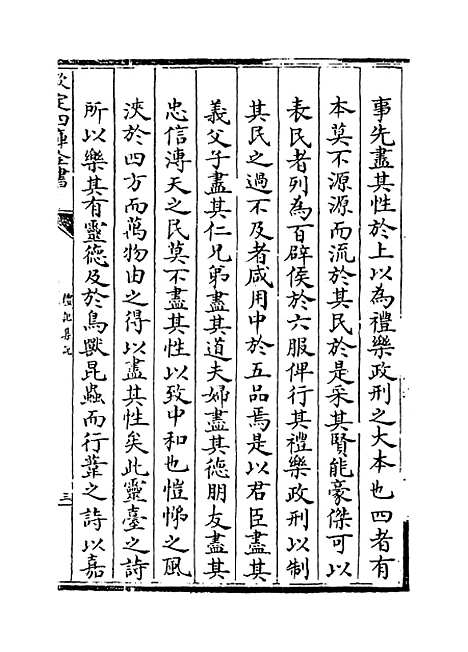 事先盡其性於上以為禮樂政刑之大本也四者有
本莫不源源而流於其民於是采其賢能豪傑可以
表民者列為百辟侯於六服俾行其禮樂政刑以制
其民之過不及者咸用中於五品焉是以君臣盡其
義父子盡其仁兄弟盡其道夫婦盡其德朋友盡其
忠信溥天之民莫不盡其性以致中和也愷悌之風
浹於四方而萬物由之得以盡其性矣此靈臺之詩
所以樂其有靈德及於鳥獸昆蟲而行葦之詩以嘉
欽定四庫全書
禮記集說
三